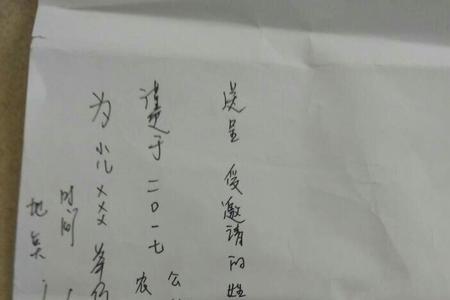 送呈 受邀请的姓
谨定于 二〇一七 农 公
为 小儿 XXX 举行
时间
地点